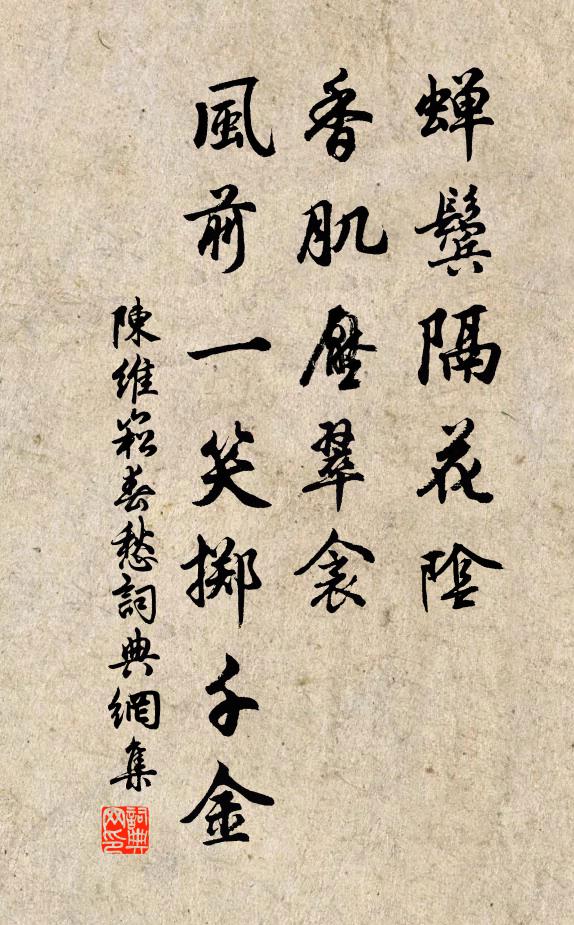 蝉鬢隔花陰
香肌壓翠衾
風前一笑擲千金
陳維崧春愁詞典網集
詞典網印